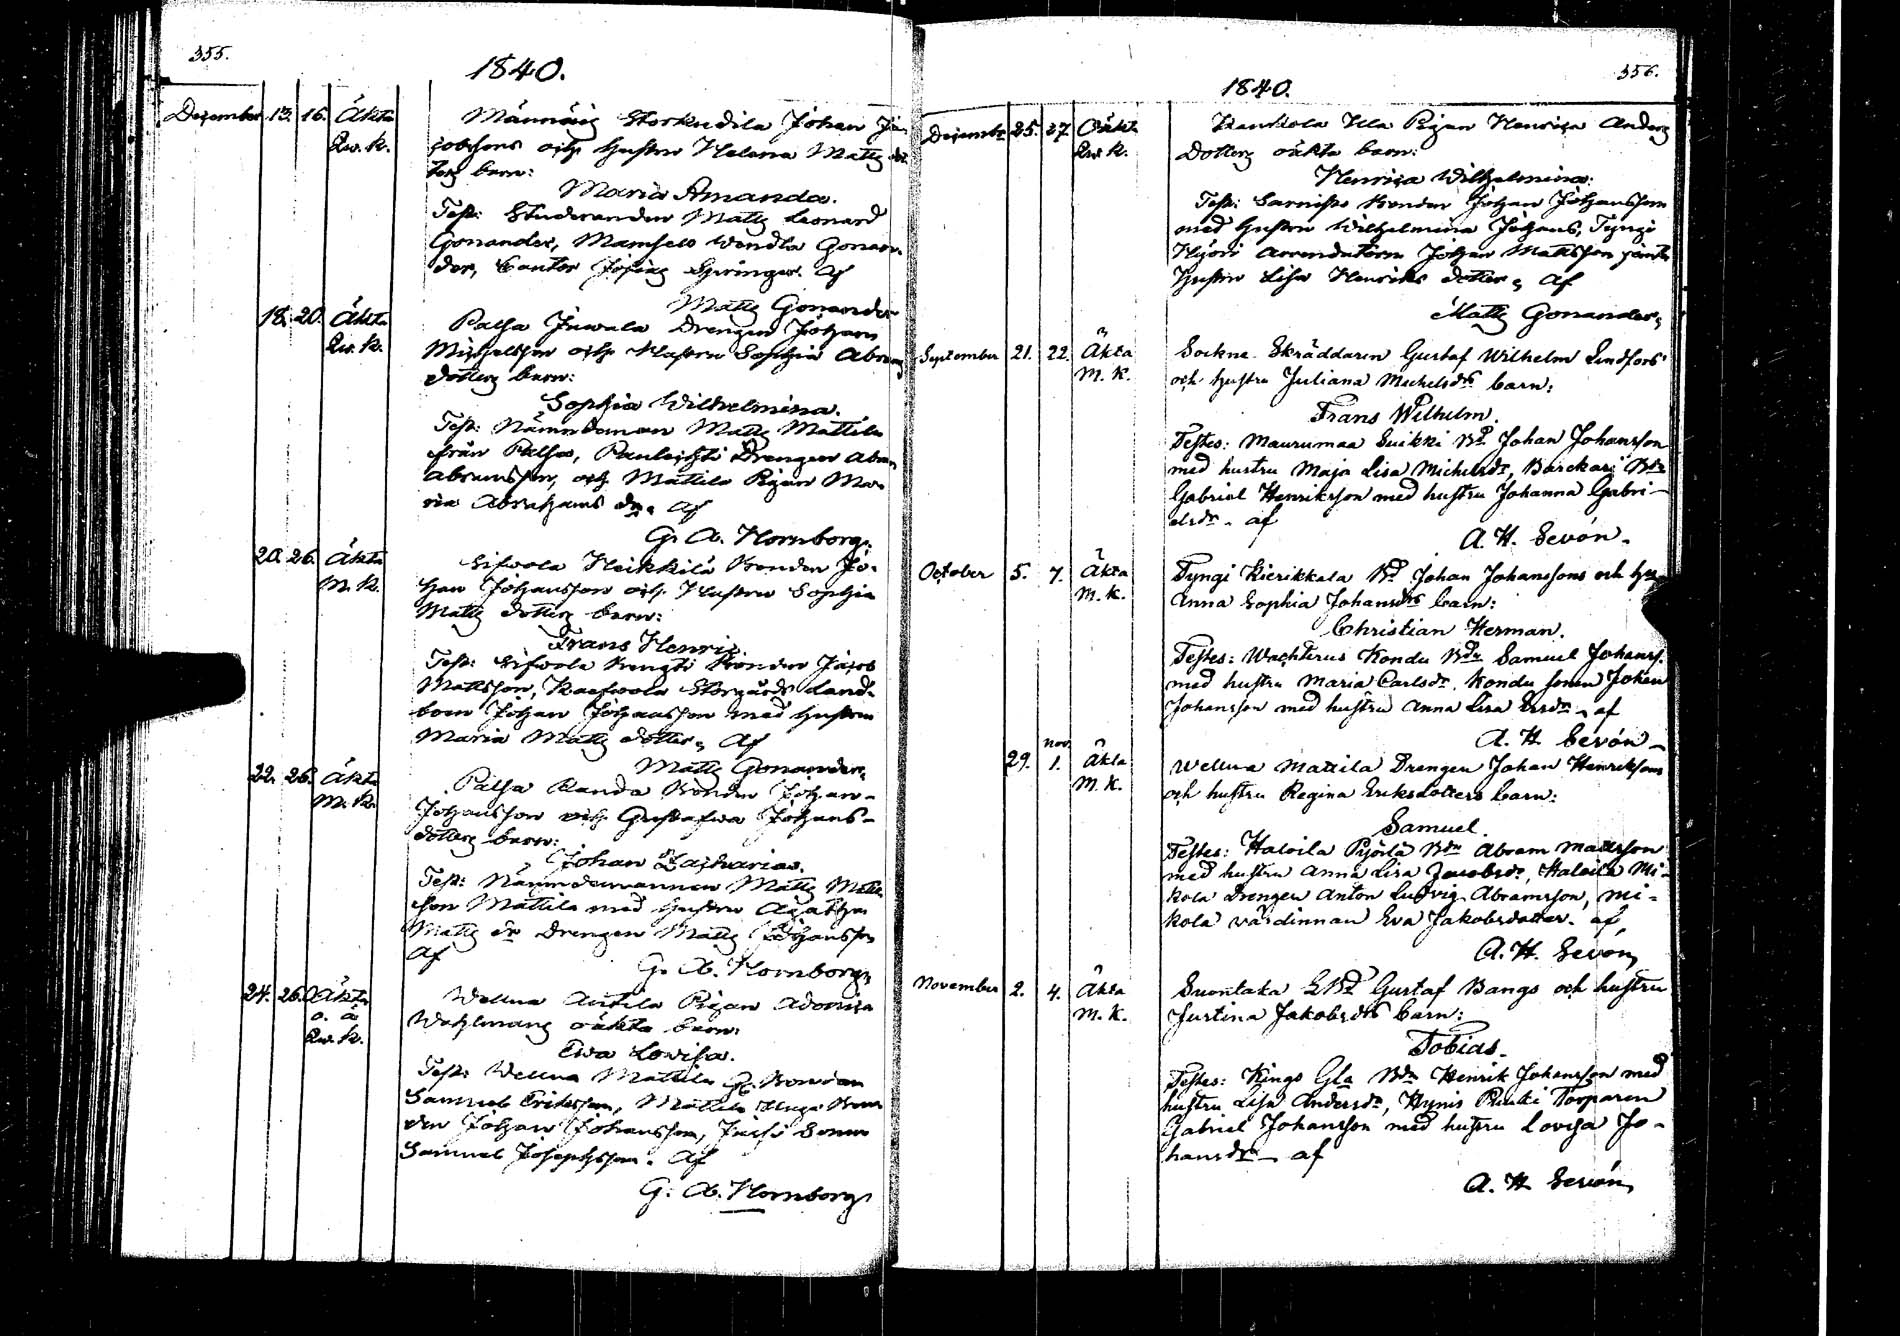 355.
1840.
December 13. 16. Äkta Männäig Storkudila Johan Ja-
Qw. K. cobssons och hustru Helena Matts dot-
ters barn:
Maria Amanda.
Test: Studeranden Matts Leonard
Gonander, Mamsell Wendla Gonan-
der, Cantor Springer. Af
Matts Gonander
18. 20. Äkta Palsa Juwala Drengen Johan
Qw. K. Michelsson och Hustru Sophia Abrams
dotters barn:
Sophia Wilhelmina.
Test: Nämndeman Matts Mattila
från Palsa, Drengen Abram
Abramsson, och Mattila Pigan Ma-
ria Abrahams dr. af
G. A. Hornborg.
20. 26. Äkta Sifwola Heikkilä Bonden Jo-
M. K. han Johansson och Hustru Sophia
Matts dotters barn:
Frans Henric.
Test: Sifwola Bengti Bonden Jacob
Mattsson, Storgårds Land-
boen Johan Johansson med hustru
Maria Matts dotter, Af
Matts Gonander,
22. 26. Äkta Palsa Randa Bonden Johan
M. K. Johansson och Gustafwa Johans-
dotters barn:
Johan Zacharias.
Test: Nämndemannen Matts Matts
son Mattila med hustru Agatha
Matts dr Drengen Matts Johansson
Af
G. A. Hornborg,
24. 26. Oäkta Wellua Anttila Pigan Adolfina
o. ä Wahlmans oäkta barn:
Qw. K.
Ewa Lowisa.
Test: Wellua Mattila Bonden
Samuel Eriksson, Mattila Bon-
den Johan Johansson, Sonen
Samuel Josephsson. Af
G. A. Hornborg
356.
1840.
December 25. 27. Oäkta Ulla Pigan Henrica Anders
Qw. K. Dotters oäkta barn:
Henrica Wilhelmina:
Test: Bonden Johan Johansson
med hustru Wilhelmina Johans, Tyngi
Arrendatorn Johan Mattsson jämte
hustru Lisa Henriks dotter, Af
Matts Gonander,
September 21. 22. Äkta Sockne Skräddaren Gustaf Wilhelm Lindfors'
M. K. och hustru Juliana Michelsdrs barn:
Frans Wilhelm.
Testes: Maurumaa Suikki Bd Johan Johansson
med hustru Maja Lisa Michelsdr, Barckari Bdn
Gabriel Henriksson med hustru Johanna Gabri-
elsdr. af
A. H. Sevón.
October 5. 7. Äkta Tyngi Kierikkala Bd Johan Johanssons och hu
M. K. Anna Sophia Johansdrs barn:
Christian Herman.
Testes: Wachterus Kondu Bdn Samuel Johanss.
med hustru Maria Carlsdr. Kondu sonen Johan
Johansson med hustru Anna Lisa Ersdr, af
A. H. Sevón
29. Nov. 1. Äkta Wellua Mattila Drengen Johan Henrikssons
M. K. och hustru Regina Eriksdotters barn:
Samuel.
Testes: Haloila Pyörlä Bdn Abram Mattsson
med hustru Anna Lisa Jacobsdr, Haloila Mi-
kola Drengen Anton Ludvig Abramsson, Mi-
kola värdinnan Eva Jakobsdotter. af
A. H. Sevón,
November 2. 4. Äkta Suontaka Gustaf Bangs och hustru
M. K. Justina Jakobsdrs barn:
Tobias.
Testes: Kings Gla Bdn Henrik Johansson med
hustru Lisa Andersdr, Hynis Ruuki Torparen
Gabriel Johansson med hustru Lovisa Jo-
hansdr af
A. H. Sevón,